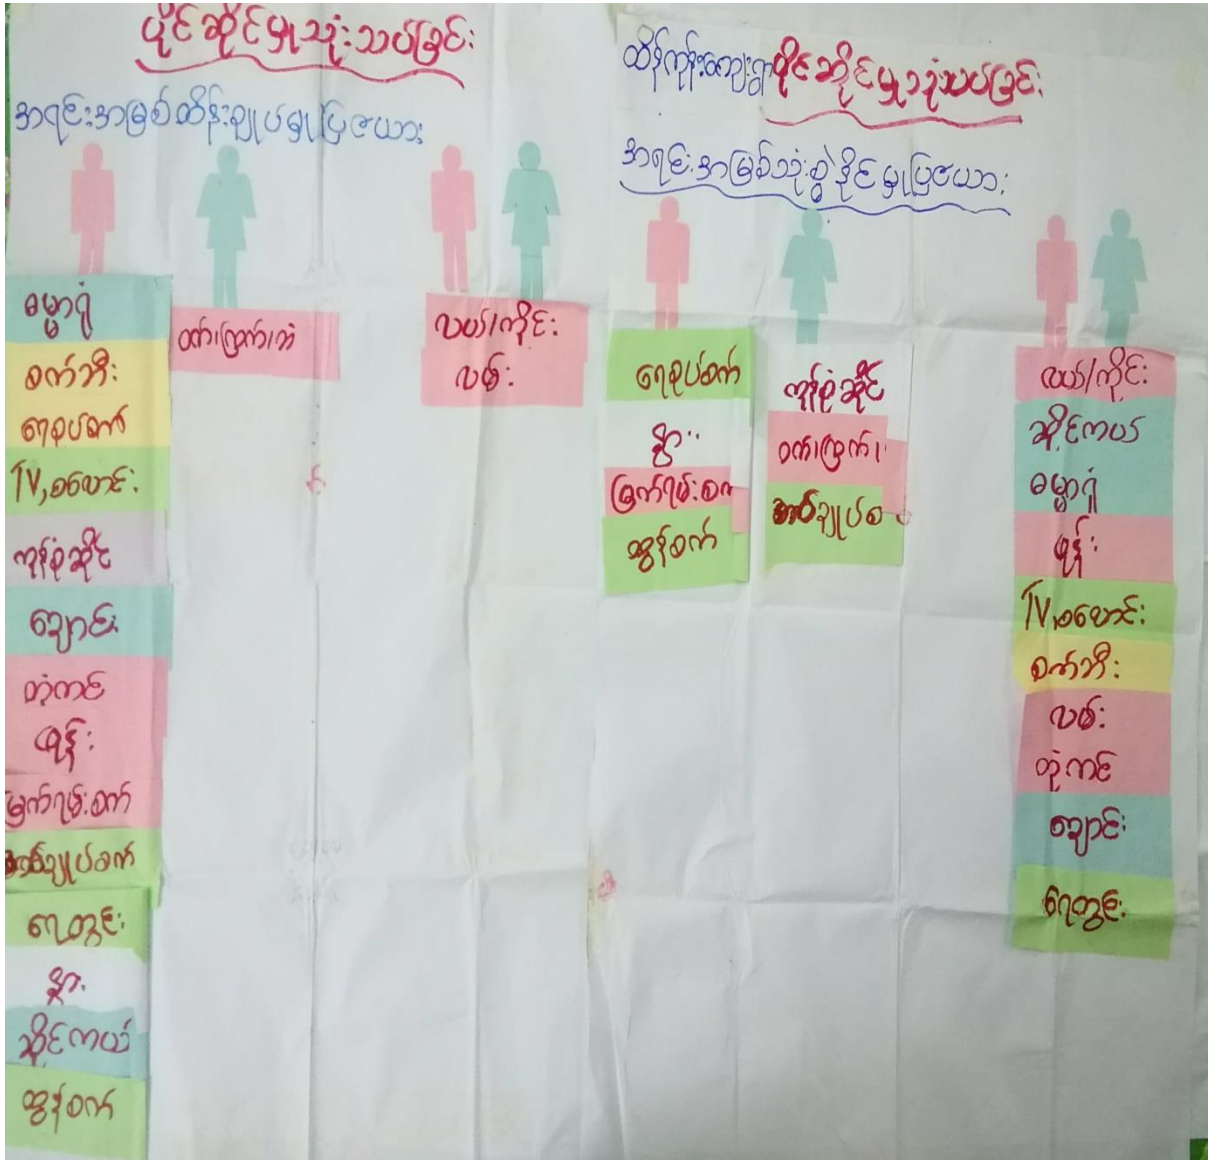 ပိုင်ဆိုင်မှုသုံးသပ်ခြင်း
အရင်းအမြစ်ထိန်းချုပ်မှုပြဇယား
ဓမ္မာရုံ
စက်ဘီး
ရေစုပ်စက်
TV, စလောင်း
ကုန်စုံဆိုင်
ချောင်း
တုံကင်
ဖုန်း
မြက်ရမ်းစက်
စက်ချုပ်စက်
ရေတွင်း
နွား
ဆိုင်ကယ်
ထွန်စက်
ဝက်၊ကြက်၊ဘဲ
လယ်/ကိုင်း
လမ်း
ထိန်ကုန်းကျေးရွာ ပိုင်ဆိုင်မှုသုံးသပ်ခြင်း
အရင်းအမြစ်သုံးစွဲနိုင်မှုပြဇယား
ရေစုပ်စက်
နွား
မြက်ရမ်းစက်
ထွန်စက်
ကုန်စုံဆိုင်
ဝက်၊ကြက်၊
လယ်/ကိုင်း
ဆိုင်ကယ်
ဓမ္မာရုံ
ဖုန်း
TV, စလောင်း
စက်ဘီး
လမ်း
တုံကင်
ချောင်း
ရေတွင်း